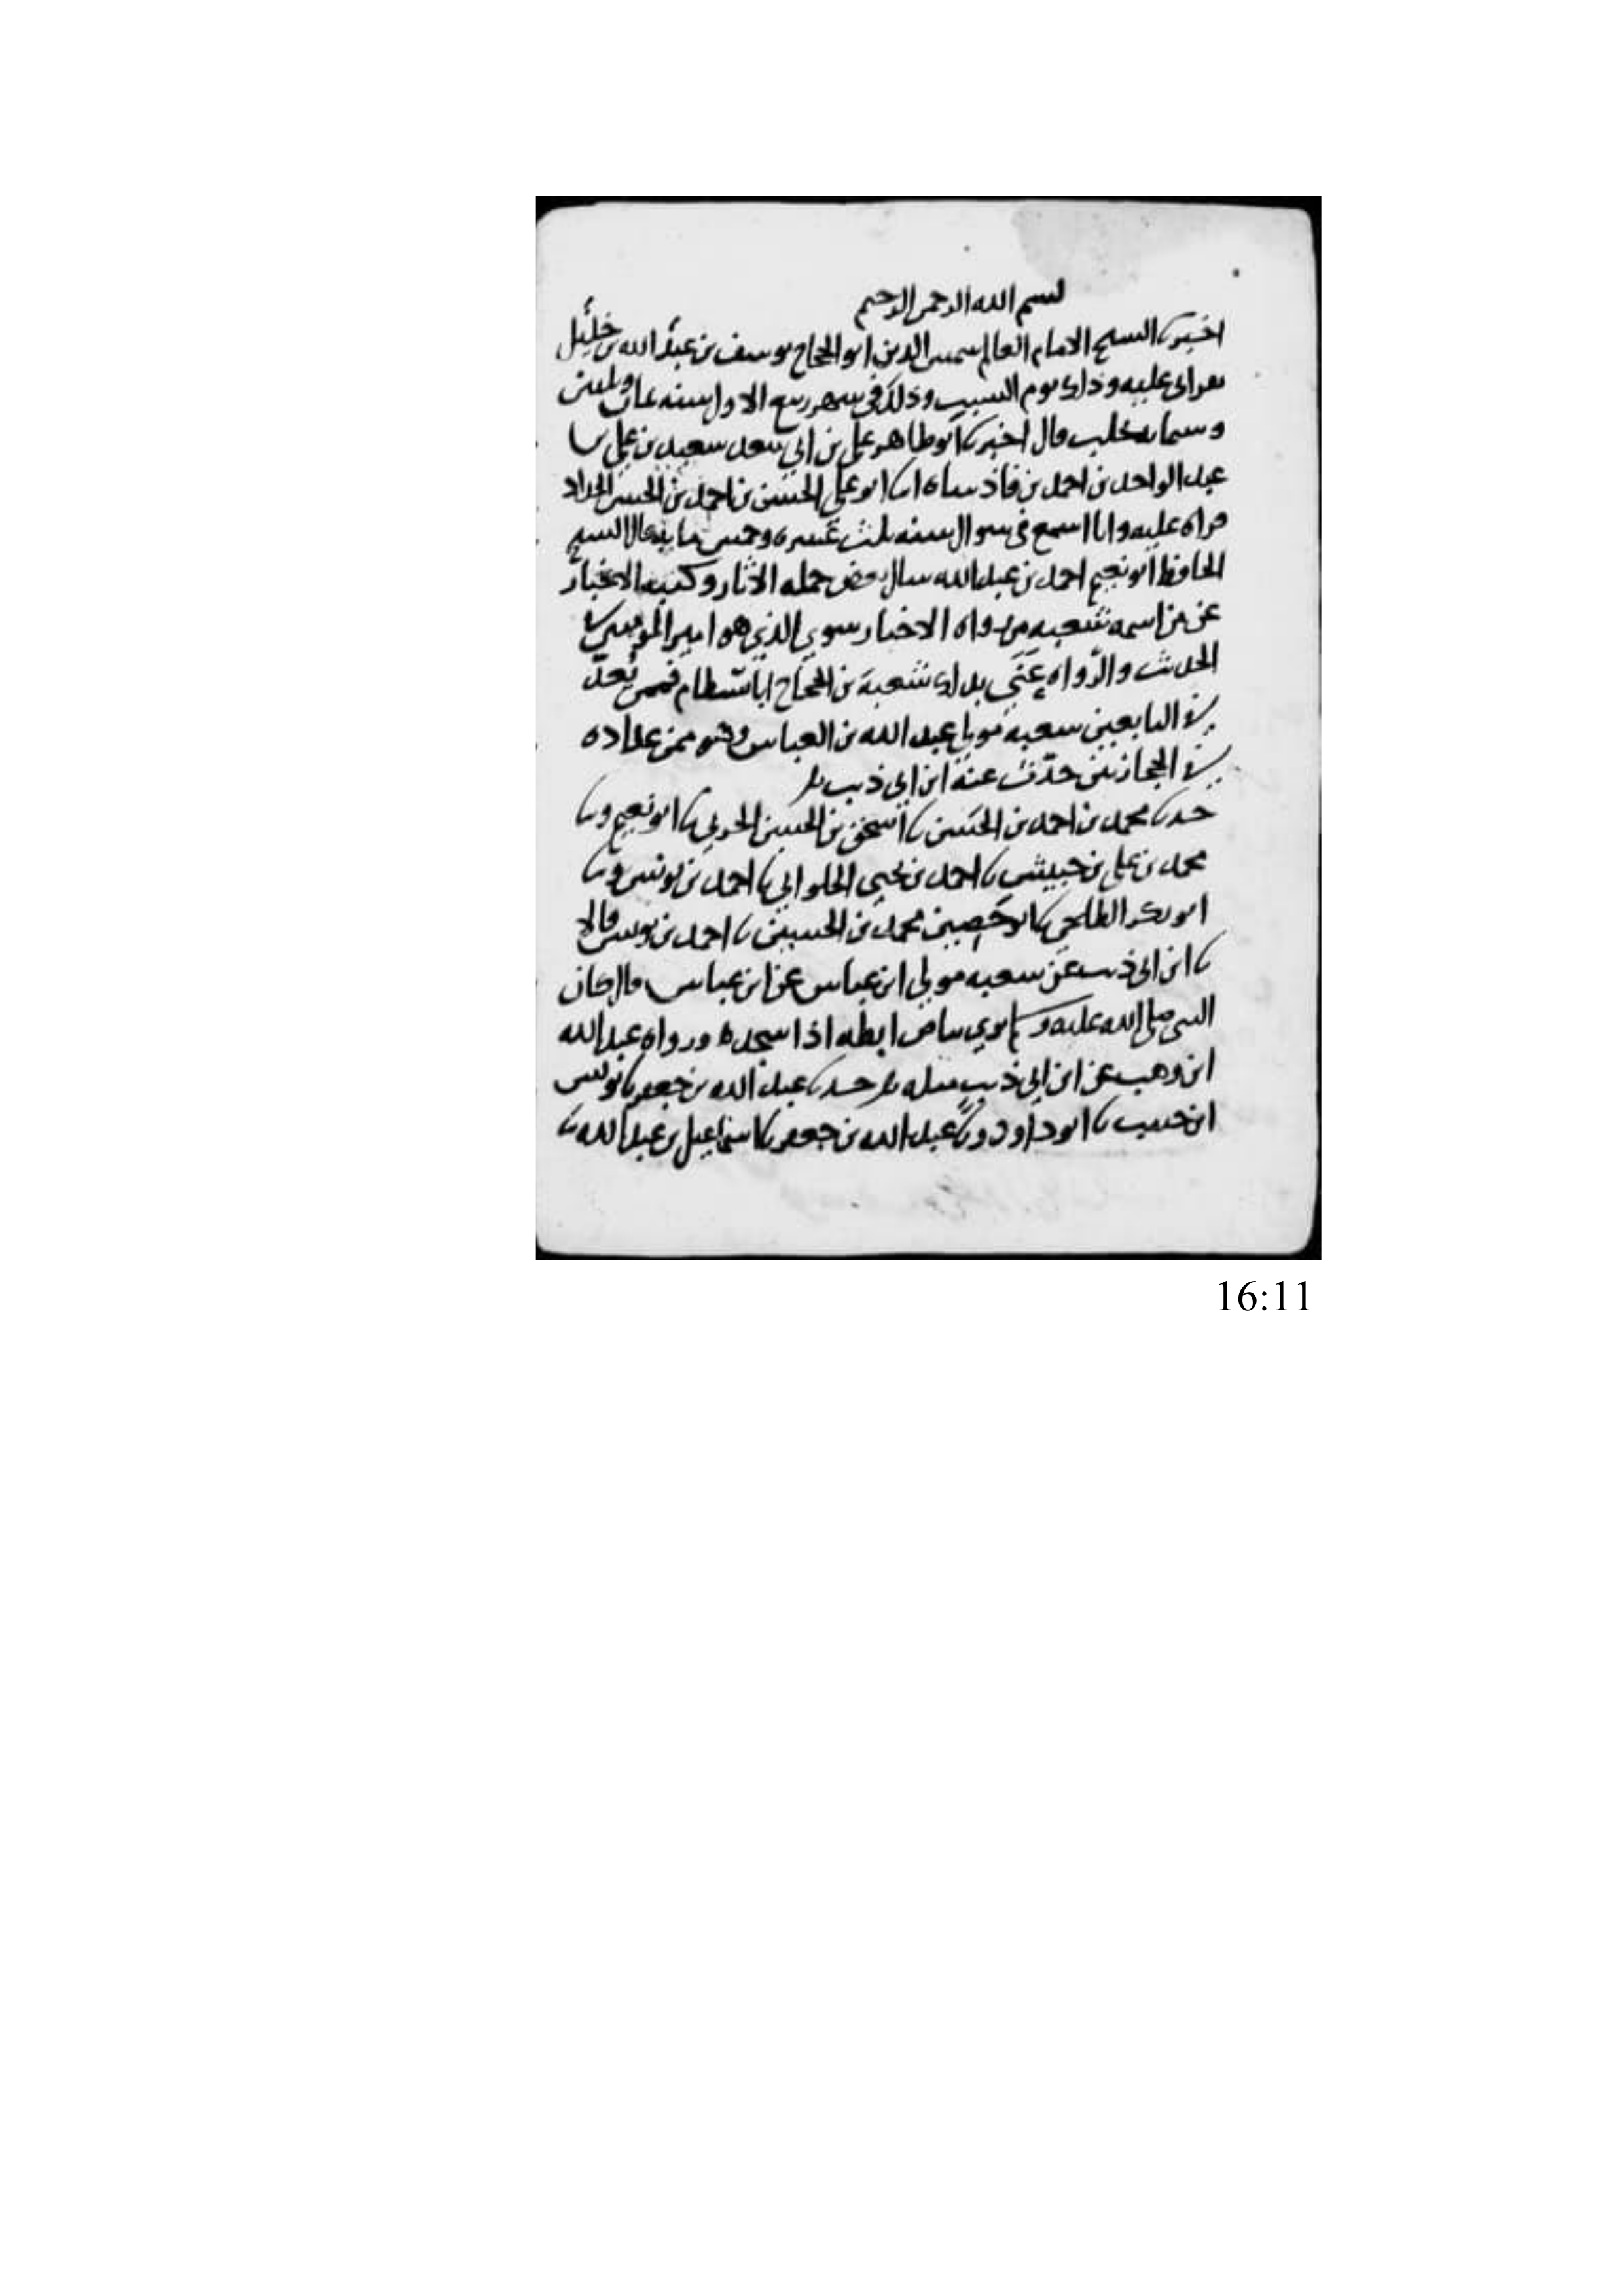 بسم الله الرحمن الرحيم
اخبرنا الشيخ الامام العالم شمس الدين ابو الحجاج يوسف بن عبد الله بن خليل
بقراتي عليه وذلك يوم السبت وذلك في شهر ربيع الاول سنه ثمان وثلثين
وستمايه بحلب قال اخبرنا ابو طاهر علي بن ابي سعد سعيد بن علي بن
عبد الواحد بن احمد بن فاذشاه انا ابو علي الحسن بن احمد بن الحسن الحداد
قراه عليه وانا اسمع في شوال سنه ثلث عشره وخمس مايه قال الشيخ
الحافظ ابو نعيم احمد بن عبد الله سال بعض حمله الاثار وكتبه الاخبار
عن من اسمه شعبه من رواه الاخبار سوى الذي هو امير المومنين في
الحديث والرّواه عَنَى بذلك شعبة بن الحجاج ابا بسطام فممن يُعدّ
في التابعين شعبه مولى عبد الله بن العباس وهو ممن عداده
في الحجازيين حدّث عنه ابن ابي ذيب
حدثنا محمد بن احمد بن الحسن نا اسحق بن الحسن الحربي نا ابو نعيم ونا
محمد بن علي بن حبيش نا احمد بن يحيى الحلواني نا احمد بن يونس ونا
ابو بكر الطلحي نا ابو حَصين محمد بن الحسين نا احمد بن يونس قالا
نا ابن ابي ذيب عن شعبه مولى ابن عباس عن ابن عباس قال كان
النبي صلى الله عليه وسلم يرى بياض ابطه اذا سجد ه ورواه عبد الله
ابن وهب عن ابن ابي ذيب مثله حدثنا عبد الله بن جعفر نا يونس
ابن حبيب نا ابو داوود ونا عبد الله بن جعفر نا اسماعيل بن عبد الله نا
16:11